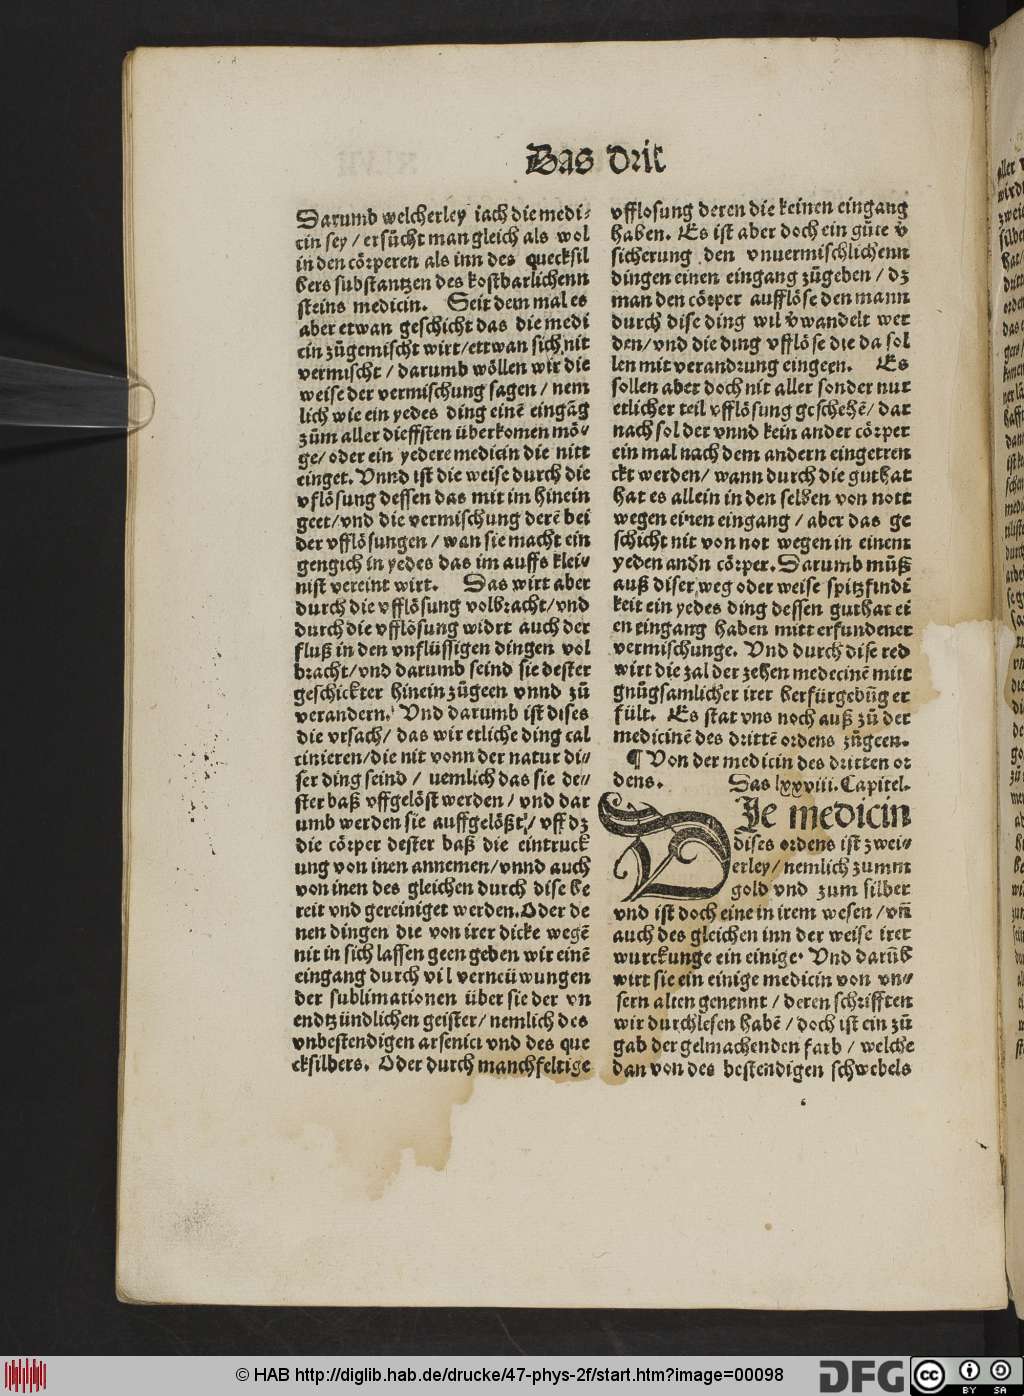 Das drit
Darumb welcherley iach die medi⸗
cin sey / ersůcht man gleich als wol
in den cörperen als inn des quecksil
bers substantzen des kostbarlichenn
steins medicin. Seit dem mal es
aber etwan geschicht das die medi
cin zůgemischt wirt/ettwan sich nit
vermischt / darumb wöllen wir die
weise der vermischung sagen / nem
lich wie ein yedes ding einē eingāg
zům aller dieffsten überkomen mö⸗
ge/ oder ein yedere medicin die nitt
einget. Vnnd ist die weise durch die
vflösung dessen das mit im hinein
geet/vnd die vermischung derē bei
der vfflösungen / wan sie macht ein
gengich in yedes das im auffs klei⸗
nist vereint wirt. Das wirt aber
durch die vfflösung volbracht/vnd
durch die vfflösung widrt auch der
fluß in den vnflüssigen dingen vol
bracht/vnd darumb seind sie dester
geschickter hinein zůgeen vnnd zů
verandern. Vnd darumb ist dises
die vrsach/ das wir etliche ding cal
cinieren/die nit vonn der natur di⸗
ser ding seind / uemlich das sie de⸗
ster baß vffgelöst werden / vnd dar
umb werden sie auffgelößt / vff dz
die cörper dester baß die eintruck
ung von inen annemen/vnnd auch
von inen des gleichen durch dise be
reit vnd gereiniget werden. Oder de
nen dingen die von irer dicke wegē
nit in sich lassen geen geben wir einē
eingang durch vil verneüwungen
der sublimationen über sie der vn
endtzündlichen geister/ nemlich des
vnbestendigen arsenici vnd des que
cksilbers. Oder durch manchfeltige
vfflosung deren die keinen eingang
haben. Es ist aber doch ein gůte v̈
sicherung den vnuermischlichenn
dingen einen eingang zůgeben / dz
man den cörper aufflöse den mann
durch dise ding wil v̈wandelt wer
den/vnd die ding vfflöse die da sol
len mit verandrung eingeen. Es
sollen aber doch nit aller sonder nur
etlicher teil vfflösung geschehē/ dar
nach sol der vnnd kein ander cörper
ein mal nach dem andern eingetren
ckt werden/ wann durch die guthat
hat es allein in den selben von nott
wegen einen eingang / aber das ge
schicht nit von not wegen in einem
yeden andn cörper. Darumb můß
auß diser weg oder weise spitzfindi
keit ein yedes ding dessen guthat ei
en eingang haben mitt erfundener
vermischunge. Vnd durch dise red
wirt die zal der zehen medecinē mitt
gnůgsamlicher irer herfürgebūg er
fült. Es stat vns noch auß zů der
medicinē des drittē ordens zůgeen.
¶ Von der medicin des dritten or
dens. Das lxxviii. Capitel.
DIe medicin
dises ordens ist zwei⸗
erley/ nemlich zumm
gold vnd zum silber
vnd ist doch eine in irem wesen /vñ
auch des gleichen inn der weise irer
wurckunge ein einige. Vnd darūb
wirt sie ein einige medicin von vn⸗
sern alten genennt / deren schrifften
wir durchlesen habē / doch ist ein zů
gab der gelmachenden farb / welche
dan von des bestendigen schwebels
© HAB http://diglib.hab.de/drucke/47-phys-2f/start.htm?image=00098
DFG
cc BY SA